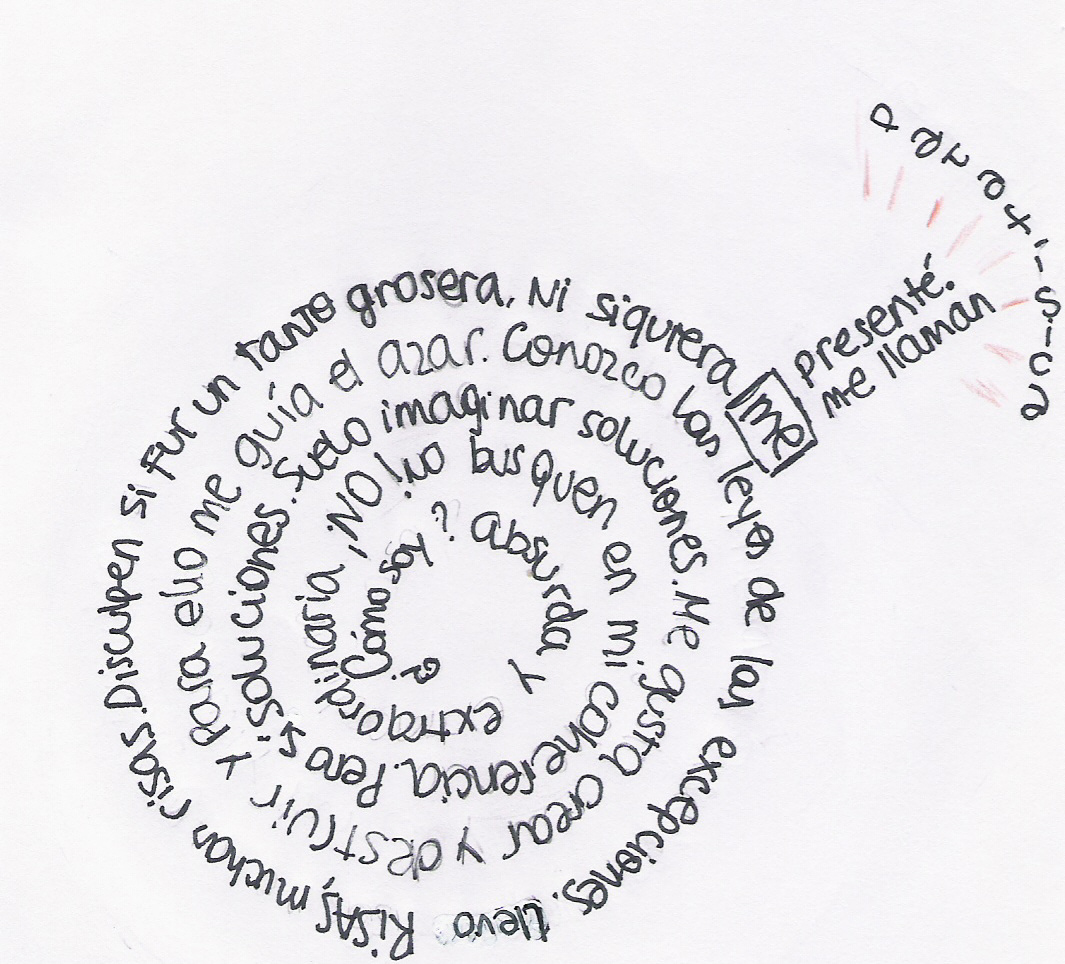 ¿Cómo soy? Absurda y extraordinaria, ¡NO! NO busquen en mi coherencia. Pero sí soluciones. Suelo imaginar soluciones. Me gusta crear y destruir y para ello me guía el azar. Conozco las leyes de las excepciones. Llevo RISAS, muchas risas. Disculpen si fui un tanto grosera, Ni siquiera me presenté.
me llaman
Patafísica